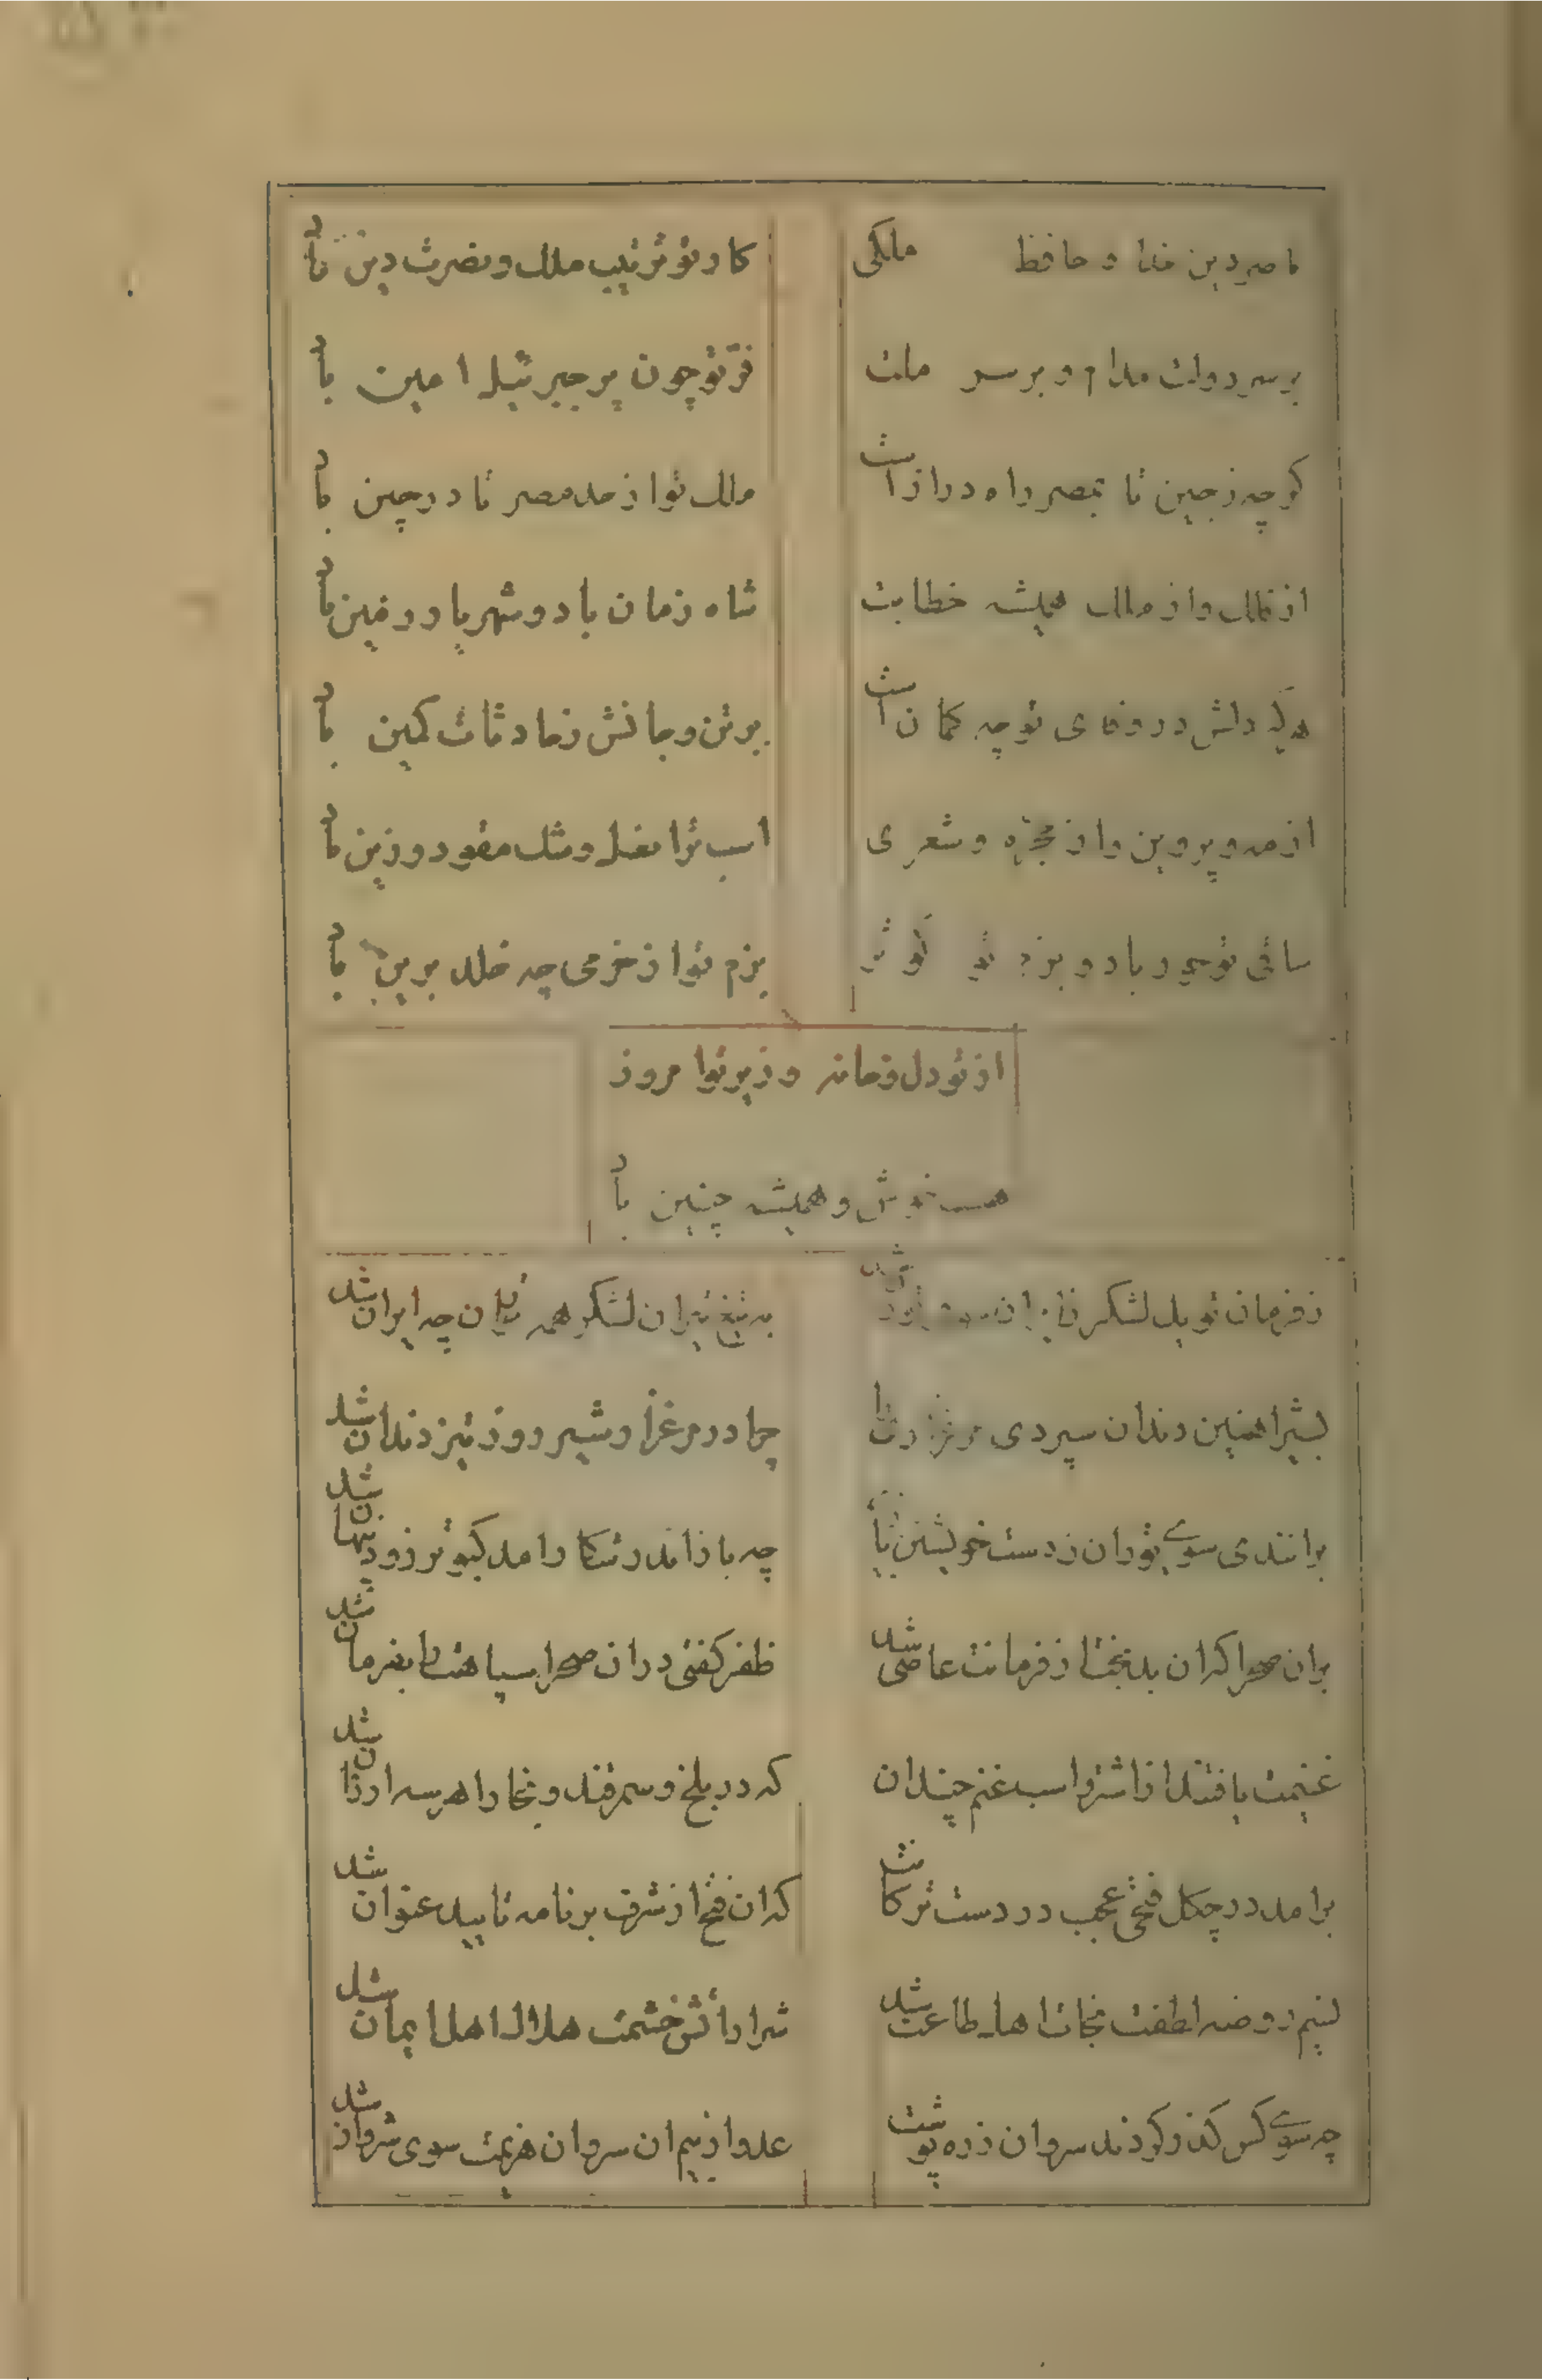 ناصر دین خدا و حافظ ملکی
کار تو ترتیب ملک و نصرت دین باد
بر سر دولت مدام و بر سر ملت
فرّ تو چون پر جبرئیل امین باد
کر چه ز چین تا بمصر راه درازاست
ملک تو از حد مصر تا در چین باد
از فلک و از ملک همیشه خطابت
شاه زمان باد و شهریار زمین باد
هرکه دلش در وفای تو چه کمان است
بر تن و جانش ز حادثات کمین باد
از مه و پروین و از مجرّه و شعری
اسب ترا نعل و مثل مقود و زین باد
ساقی تو حور باد و بزم تو کوثر
بزم تو از خرمی چه خلد برین باد
از تو دل و جان وزیر تو امروز
هست خوش و همیشه چنین باد
ز فرمان تو یک لشکر
به تیغ تیز ان لشکر همه توران چه ایران شد
بشیر اهنین دندان سپردی
چرا در مرغزار و شیر روز تیز دندان شد
براندی سوی توران ز دست خویشتن
چه باز اندر شکار امد کبوتر زود پنهان شد
بران صحرا که ان بدبخت از فرمانت عاصی شد
ظفر کفتی دران صحرا سپاهت را بفرمان شد
غنیمت یافتند از اشتر و اسب و غنم چندان
که در بلخ و سمرقند و بخارا هر سه ارزان شد
برامد در چکل فتحی عجب در دست ترکانت
که ان فتح از شرف بر نامه تایید عنوان شد
نسیم روضه لطفت نجات اهل طاعت شد
شرار اتش خشمت هلاک اهل ایمان شد
چه سوی کس کذر کردند سروان زره پوشت
عدو از بیم ان سروان هزیمت سوی شروان شد